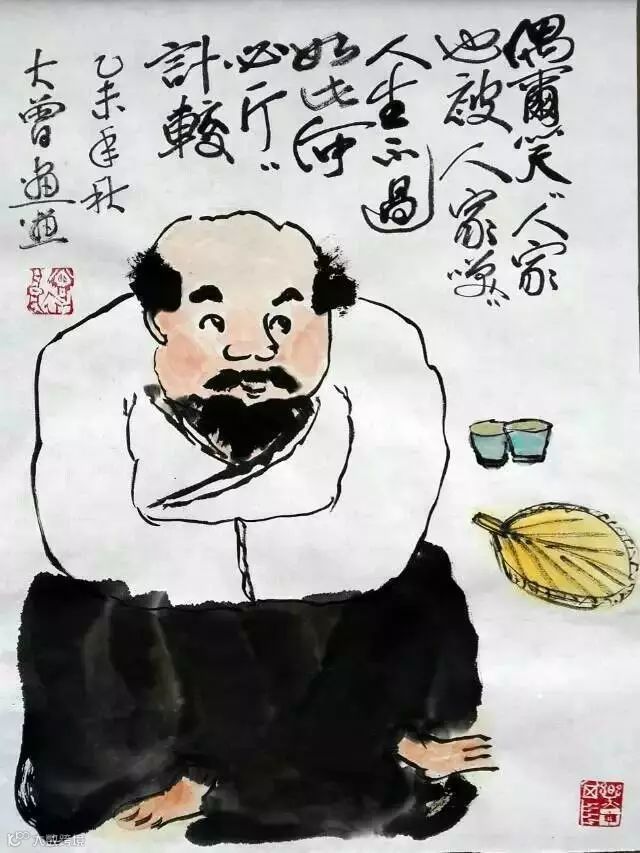 偶爾笑〃人家
也被人家咲〃
人生不過
如此何
必斤〃
計較
乙未年秋
大曾
大数跨境